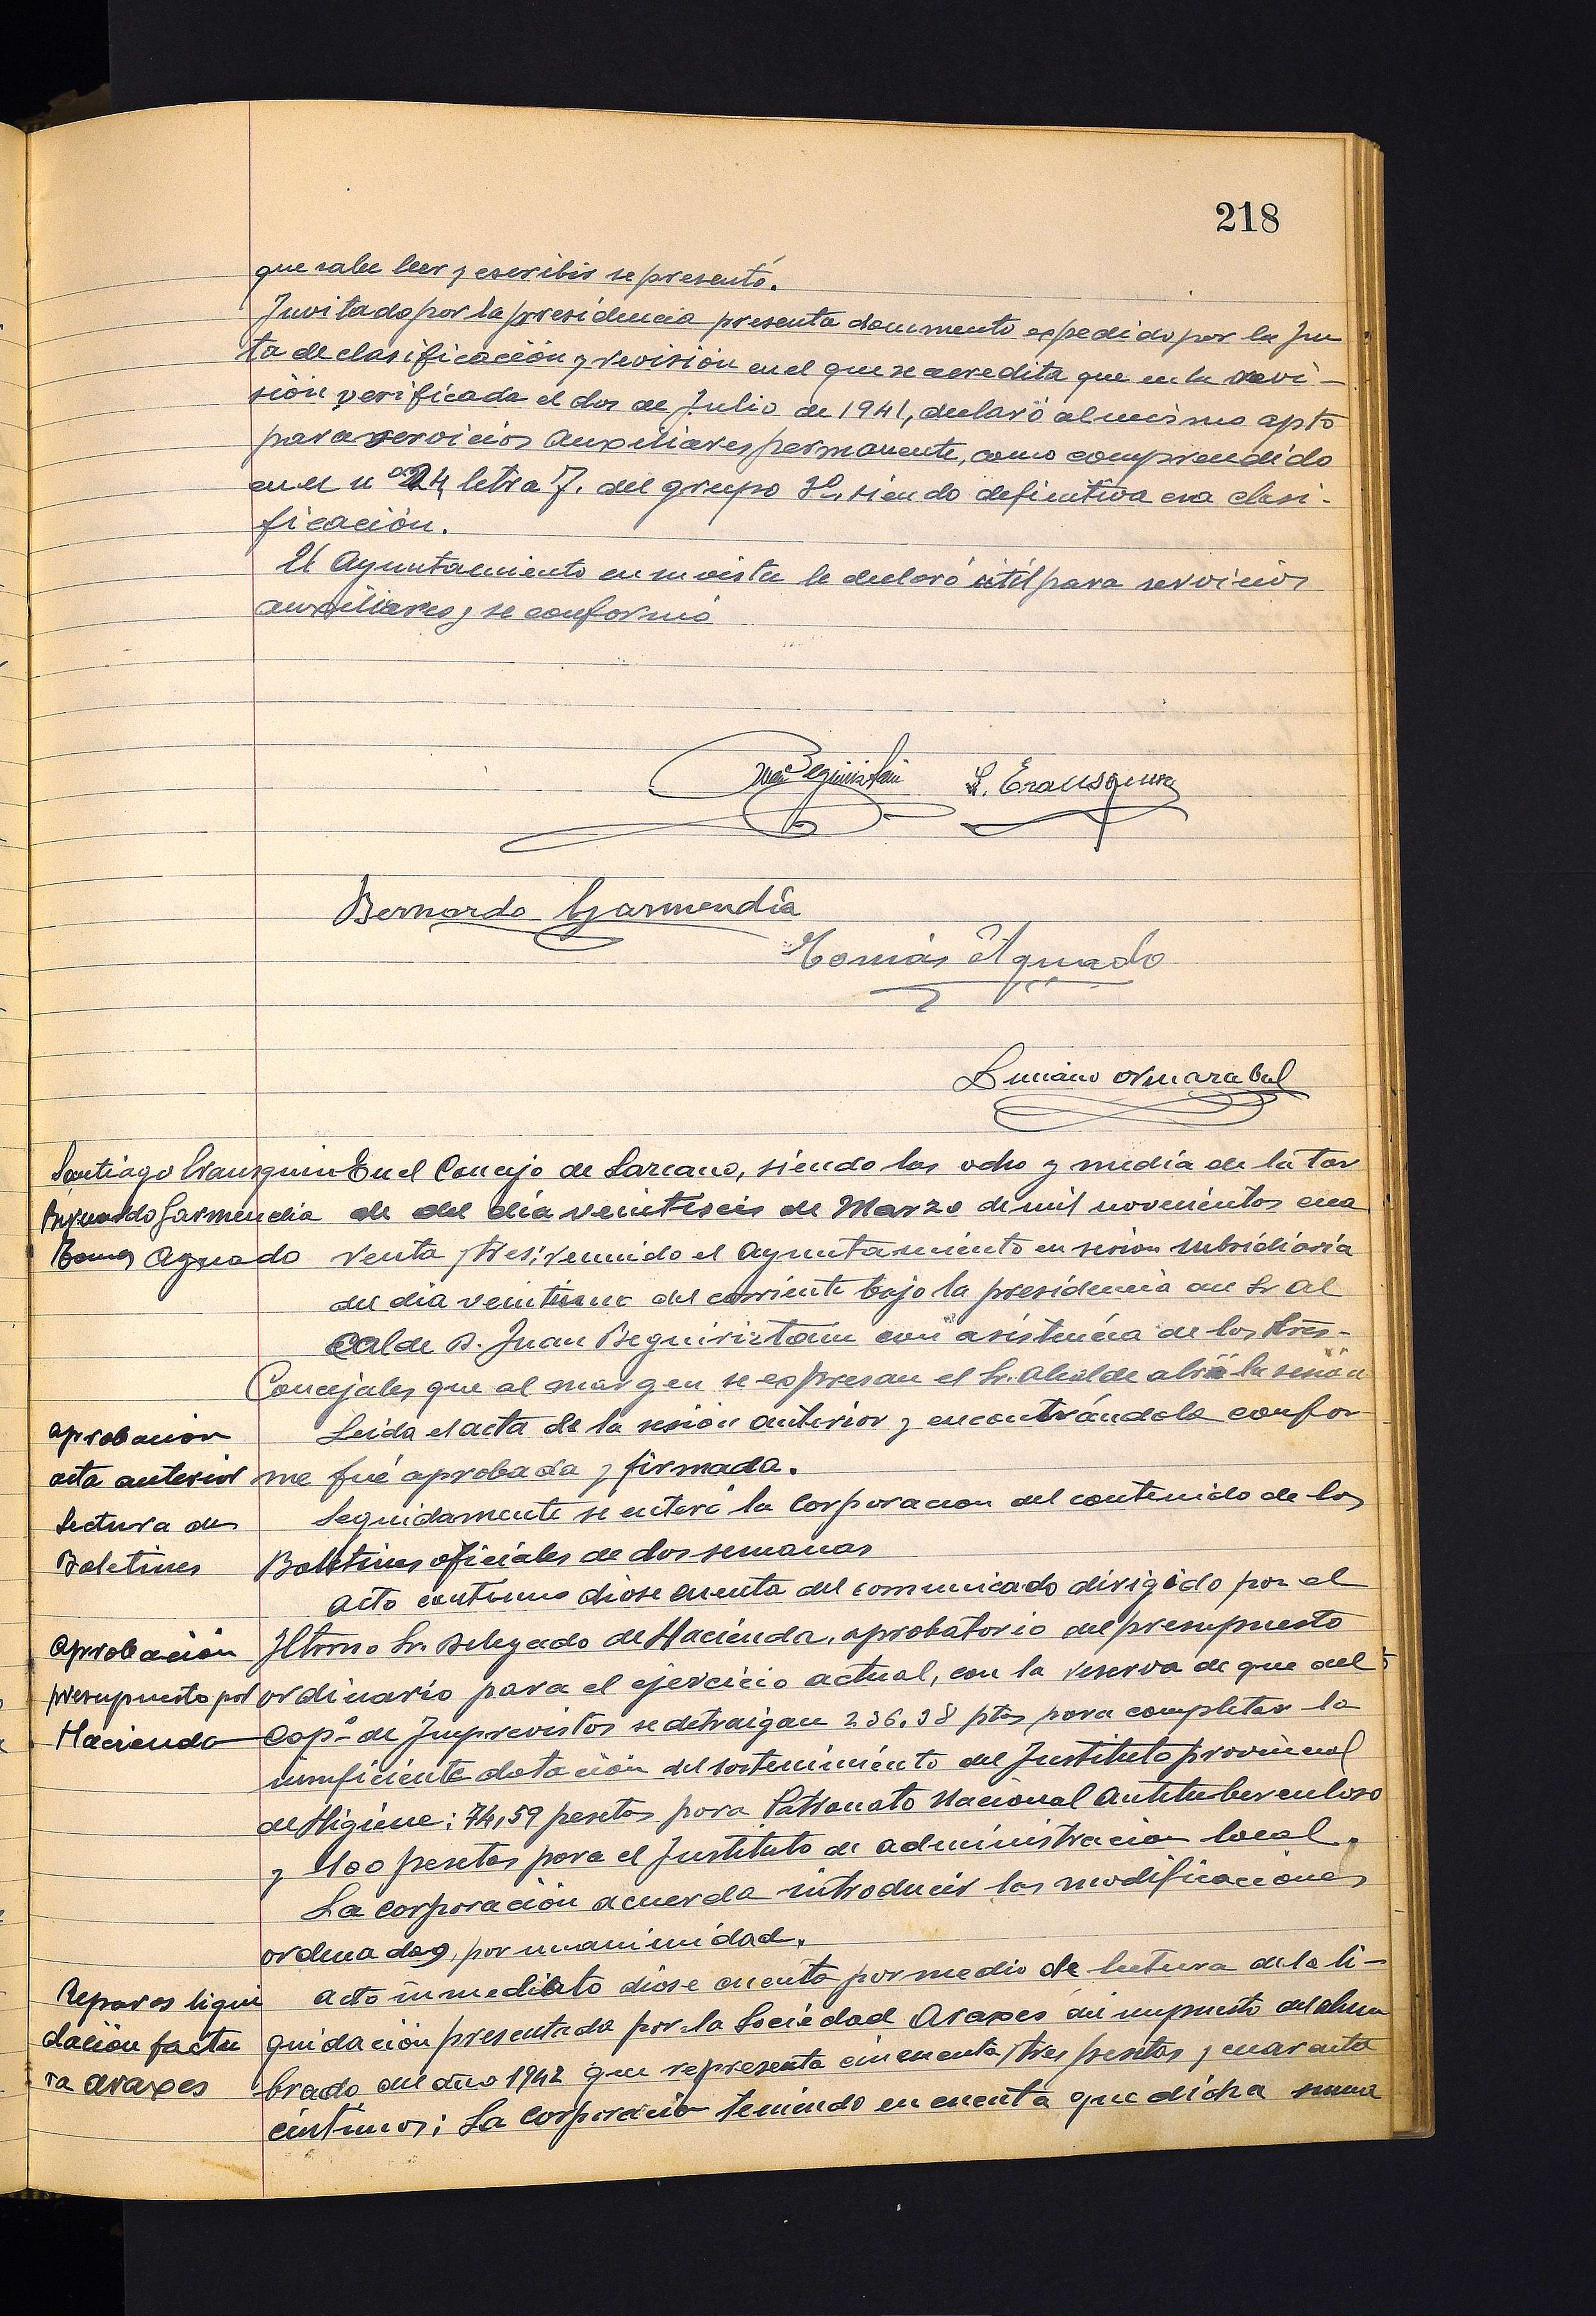 218
que sabe leer y escribir se presentó.
Invitado por la presidencia presenta documento expedido por la Jun
ta de clasificación y revisión en el que se acredita que en la revi-
sión verificada el dos de Julio de 1941, declaró al mismo apto
para servicios auxiliares permanente, como comprendido
en el nº 24 letra J. del grupo Iº, siendo definitiva esa clasi-
ficación.
El Ayuntamiento en su vista le declaró útil para servicios
auxiliares y se conformó
Juan Beguiristain S. Erausquin
Bernardo Garmendia
Tomás Aguado
Luciano
Santiago Erausquin En el Concejo de Lazcano, siendo las ocho y media de la tar
Bernardo Garmendia de del día veintiseis de Marzo de mil novecientos cua
Tomas Aguado renta y tres; reunido el Ayuntamiento en sesion subsidiaria
del dia veintiuno del corriente bajo la presidencia del Sr. Al
calde D. Juan Beguiristain con asistencia de los Sres-
Concejales que al margen se expresan el Sr. Alcalde abrió la sesión
aprobacion Leida el acta de la sesión anterior y encontrándola confor
acta anterior me fué aprobada y firmada.
Lectura de Seguidamente se enteró la Corporacion del contenido de los
Boletines Boletines oficiales de dos semanas
Acto continuo diose cuenta del comunicado dirigido por el
Aprobación Iltmo Sr. Delegado de Hacienda, aprobatorio del presupuesto
presupuesto por ordinario para el ejercicio actual, con la reserva de que del
Hacienda Capº de Imprevistos se detraigan 236.38 ptas para completar la
insuficiente dotación del sostenimiento del Instituto provincial
de Higiene; 74,59 pesetas para Patronato Nacional Antituberculoso
y 100 pesetas para el Instituto de administracion local.
La corporación acuerda introducir las modificaciones
ordenadas, por unanimidad.
Reparos liqui acto inmediato diose cuenta por medio de lectura de la li-
dación factu quidación presentada por la Sociedad Araxes del impuesto del alum
ra araxes brado del año 1942 que representa cincuenta y tres pesetas y cuarenta
centimos; La Corporació teniendo en cuenta que dicha suma